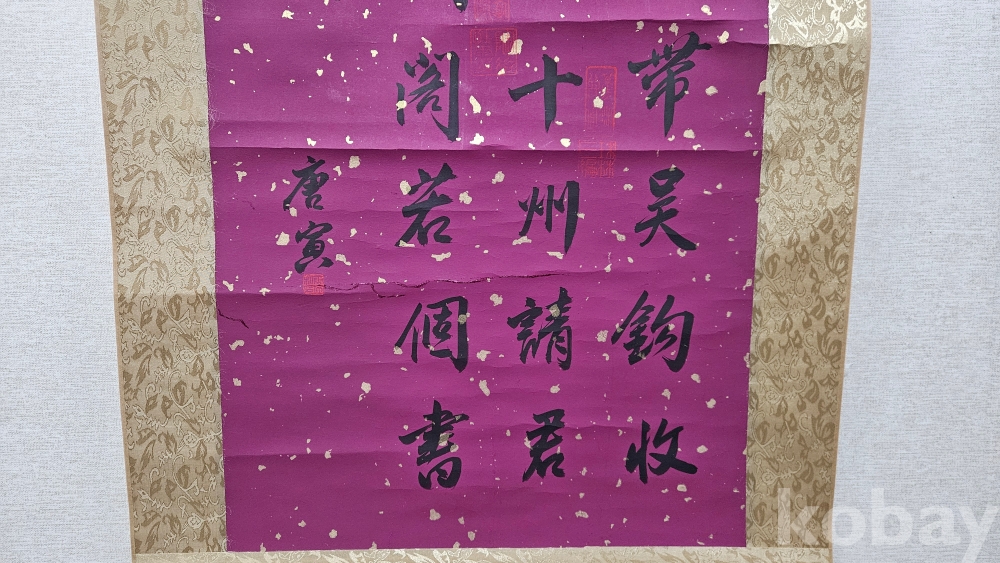 帶吴鈎收
十州請君
閣若個書
唐寅
kobay